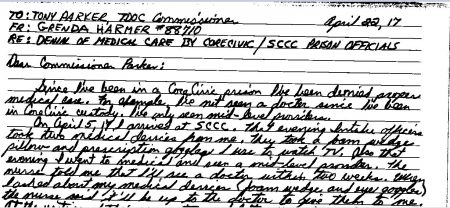 TO: TONY PARKER, TDOC Commissioner April 22, 17
FR: GRENDA HARMER #88710
RE: DENIAL OF MEDICAL CARE BY CORECIVIC / SCCC PRISON OFFICIALS
Dear Commissioner Parker:
Since I've been in a CoreCivic prison I've been denied proper
medical care. For example, I've not seen a doctor since I've been
in CoreCivic custody. I've only seen mid-level providers.
On April 5, 17 I arrived at SCCC. That evening Intake officers
took two medical devices from me. They took a foam wedge
pillow and prescription goggles I use to watch TV. Also that
evening I went to medical and seen a mid-level provider. The
nurse told me that I'll see a doctor within two weeks. When
I asked about my medical devices (foam wedge and eye goggles)
the nurse said it'll be up to the doctor to give them to me.